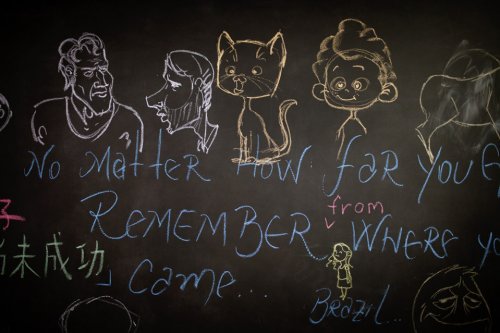 No Matter How far You
from
REMEMBER Where yo
子
尚未成功」 Came...
Brazil...